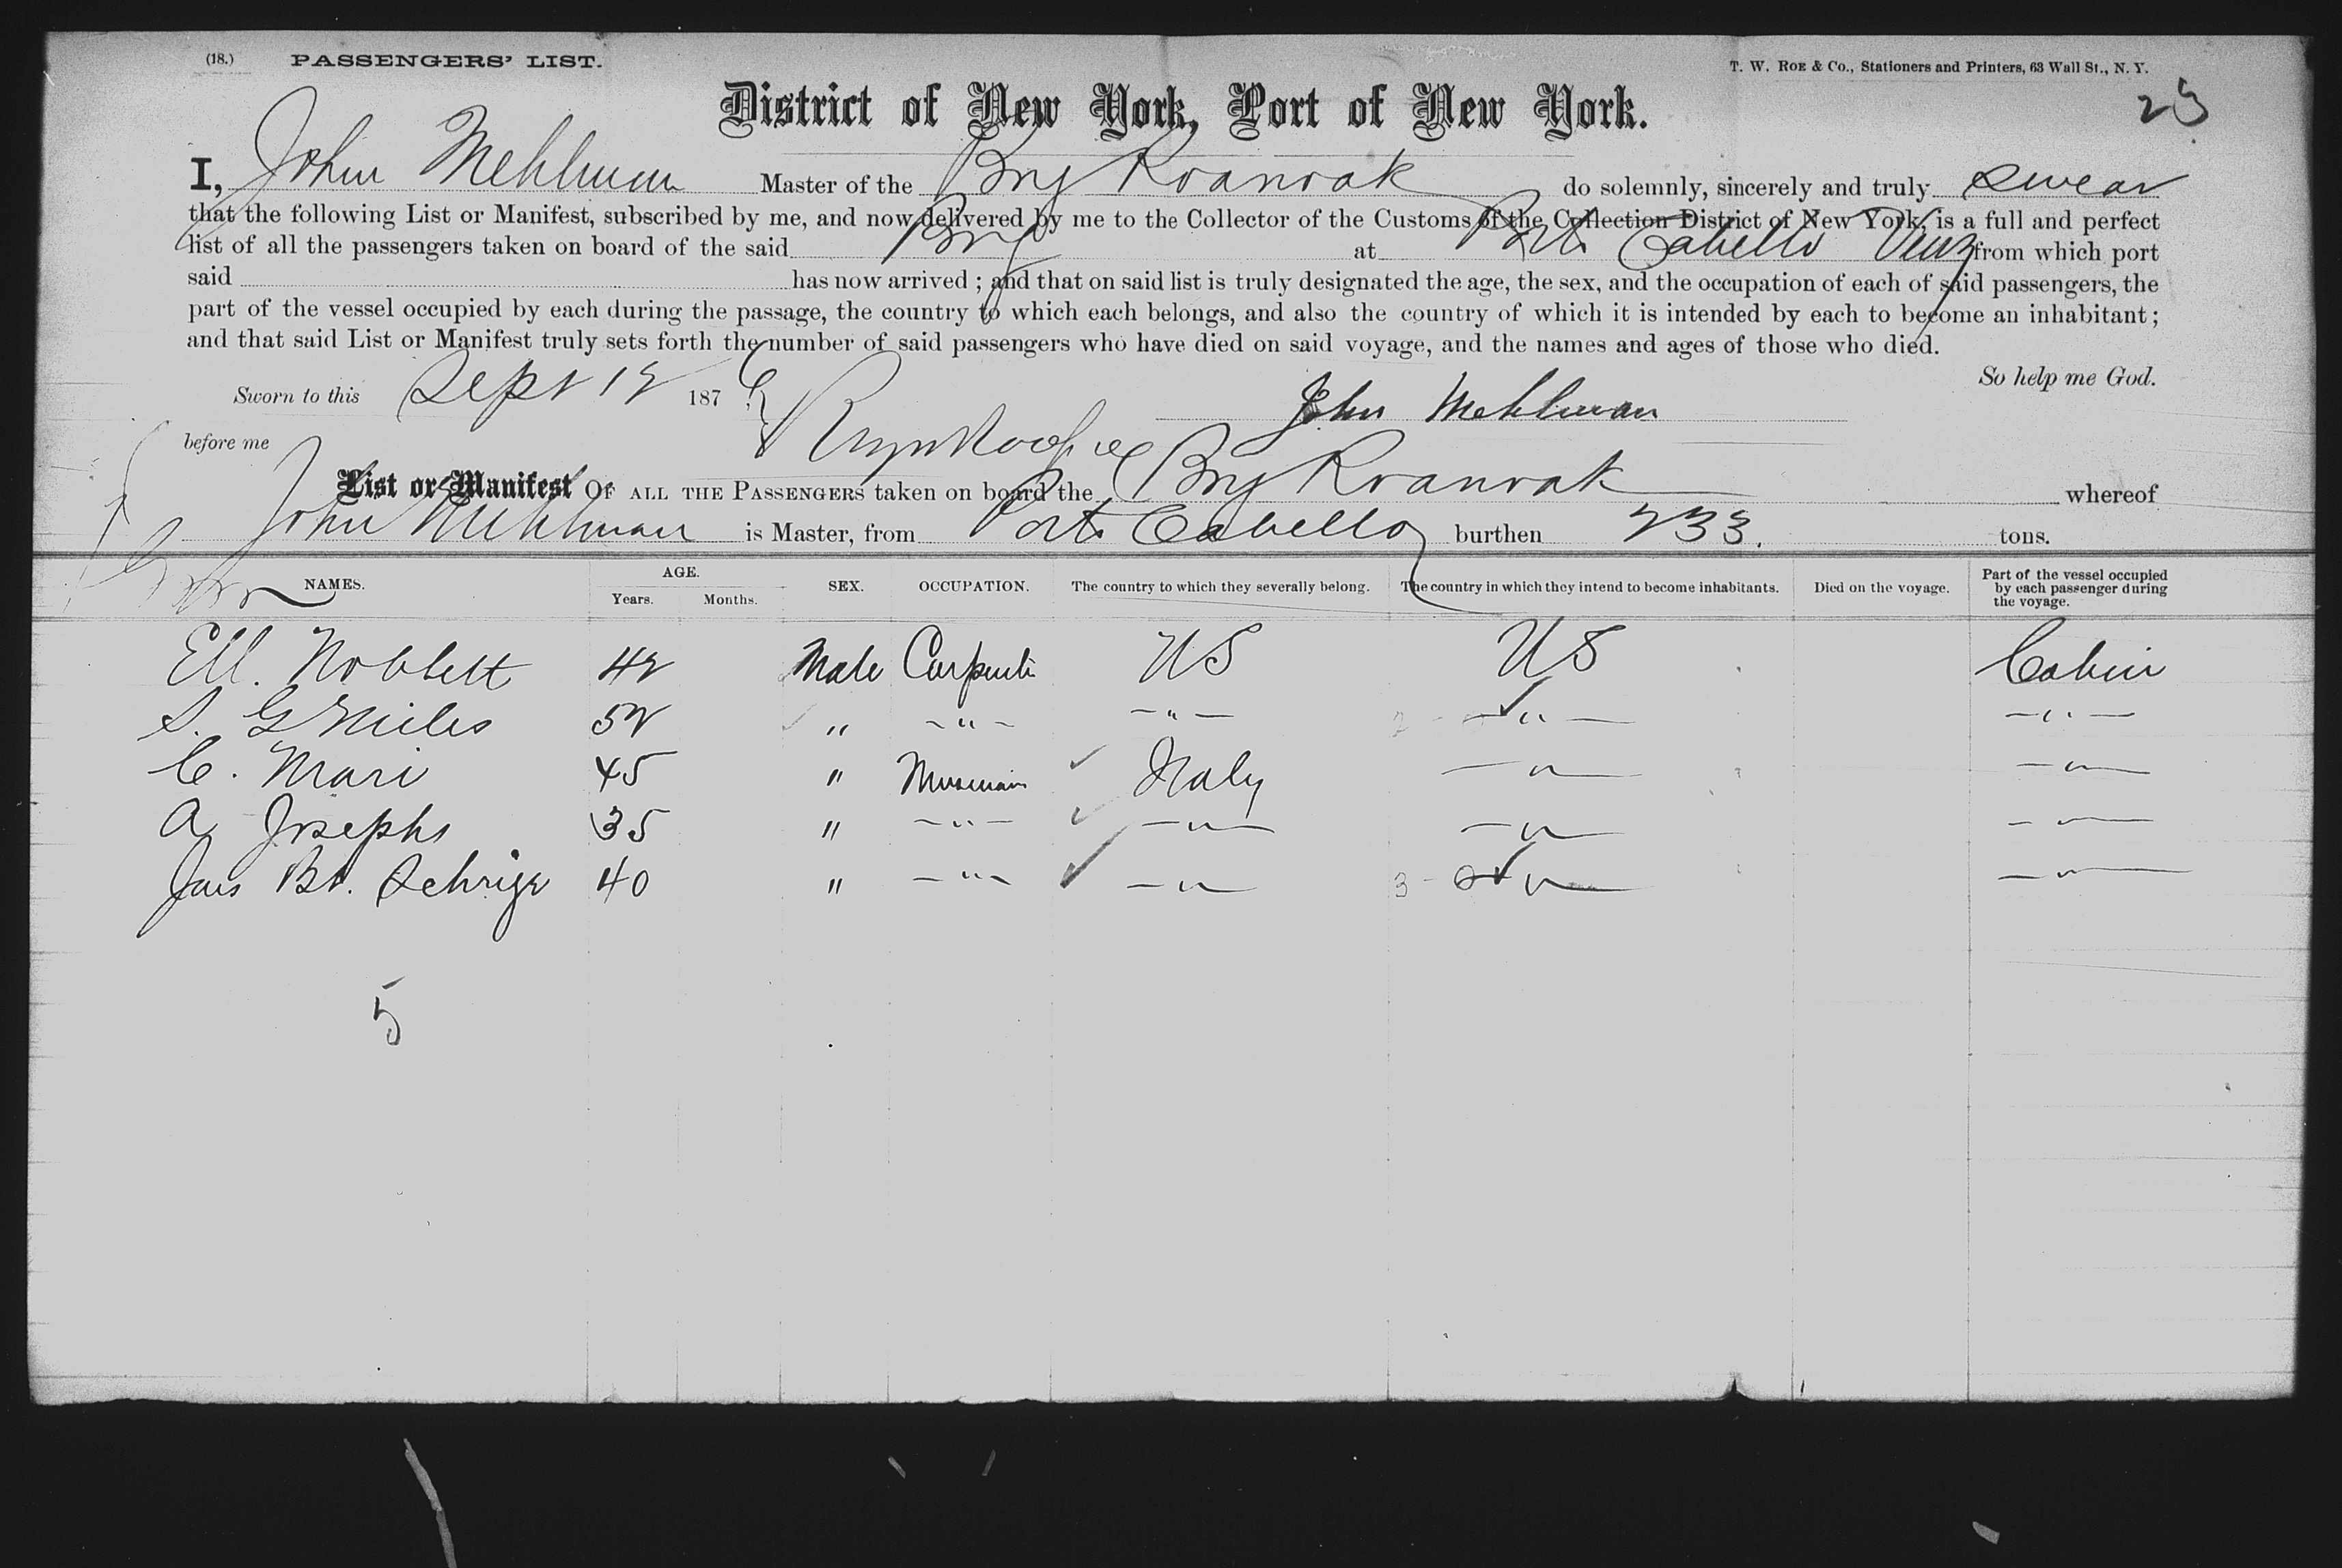 (18.) PASSENGERS' LIST. T. W. ROE & CO., Stationers and Printers, 63 Wall St., N. Y.
23
District of New York, Port of New York.
I, John Mehlman Master of the Brig Roanoak do solemnly, sincerely and truly swear
that the following List or Manifest, subscribed by me, and now delivered by me to the Collector of the Customs of the Collection District of New York, is a full and perfect
list of all the passengers taken on board of the said Brig at Porto Cabello Venz from which port
said has now arrived ; and that on said list is truly designated the age, the sex, and the occupation of each of said passengers, the
part of the vessel occupied by each during the passage, the country to which each belongs, and also the country of which it is intended by each to become an inhabitant ;
and that said List or Manifest truly sets forth the number of said passengers who have died on said voyage, and the names and ages of those who died.
So help me God.
Sworn to this Sept 12 187
John Mehlman
before me
List or Manifest OF ALL THE PASSENGERS taken on board the Brig Roanoak whereof
John Mehlman is Master, from Porto Cabello burthen 233. tons.
NAMES. AGE. Years. Months. SEX. OCCUPATION. The country to which they severally belong. The country in which they intend to become inhabitants. Died on the voyage. Part of the vessel occupied by each passenger during the voyage.
Noblett 42 Male Carpenter US US Cabin
S. G Miles 52 " - " - - " - - " - - " -
C. Mari 45 " Musician Italy - " - - " -
A Josephs 35 " - " - - " - - " - - " -
40 " - " - - " - 3 - " - - " -
5